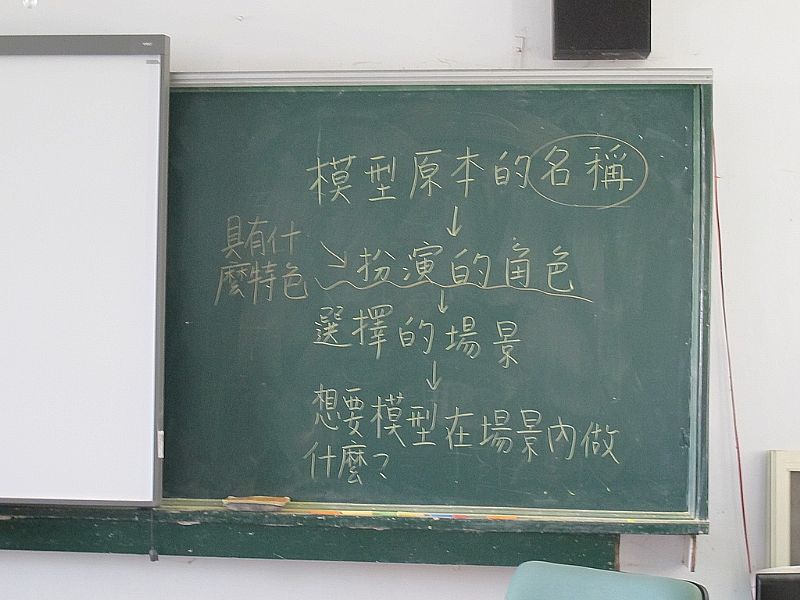 模型原本的名稱
↓
具有什
麼特色
扮演的角色
↓
選擇的場景
↓
想要模型在場景內做
什麼?